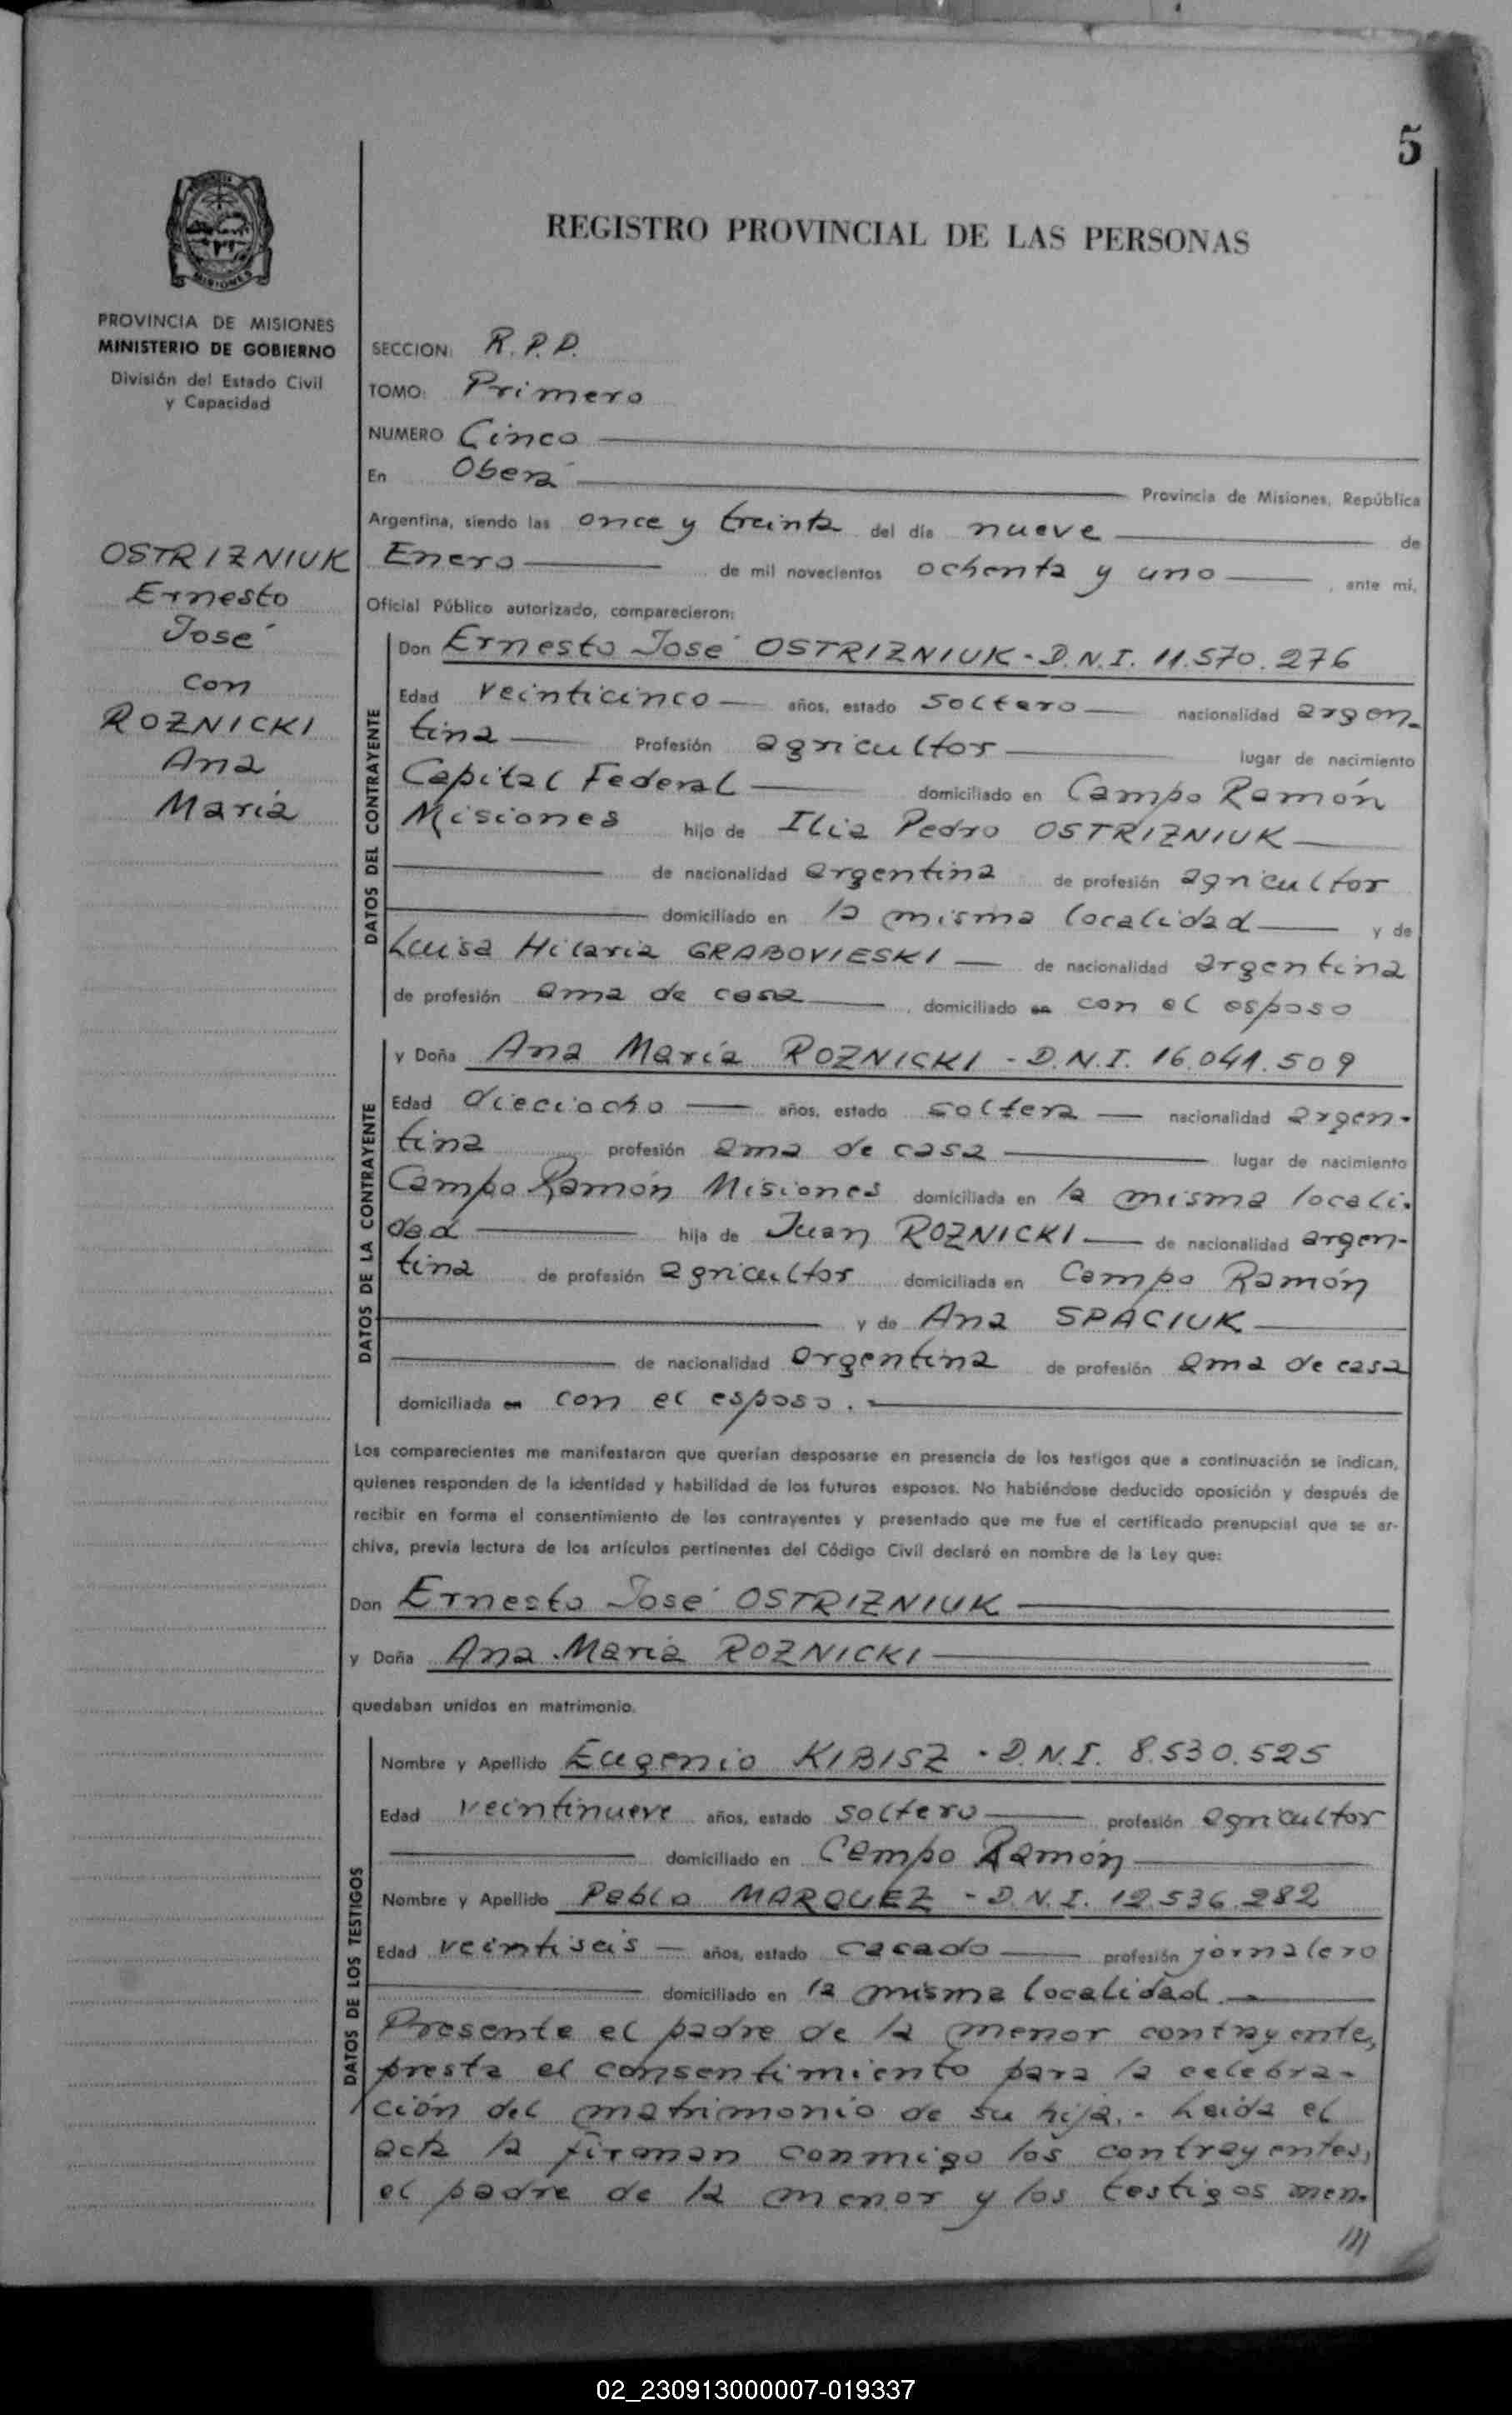 5
REGISTRO PROVINCIAL DE LAS PERSONAS
MISIONES
PROVINCIA DE MISIONES
MINISTERIO DE GOBIERNO
División del Estado Civil
y Capacidad
OSTRIZNIUK
Ernesto
José
con
ROZNICKI
Ana
María
SECCION: R.P.P.
TOMO: Primero
NUMERO Cinco
En Oberá Provincia de Misiones, República
Argentina, siendo las once y treinta del día nueve de
Enero de mil novecientos ochenta y uno , ante mi,
Oficial Público autorizado, comparecieron:
DATOS DEL CONTRAYENTE
Don Ernesto José OSTRIZNIUK - D.N.I. 11.570.276
Edad veinticinco años, estado soltero nacionalidad argen-
tina Profesión agricultor lugar de nacimiento
Capital Federal domiciliado en Campo Ramón
Misiones hijo de Ilia Pedro OSTRIZNIUK
de nacionalidad argentina de profesión agricultor
domiciliado en la misma localidad y de
Luisa Hilaria GRABOVIESKI de nacionalidad argentina
de profesión ama de casa , domiciliado en con el esposo
DATOS DE LA CONTRAYENTE
y Doña Ana María ROZNICKI - D.N.I. 16.041.509
Edad dieciocho años, estado soltera nacionalidad argen-
tina profesión ama de casa lugar de nacimiento
Campo Ramón Misiones domiciliada en la misma locali-
dad hija de Juan ROZNICKI de nacionalidad argen-
tina de profesión agricultor domiciliada en Campo Ramón
y de Ana SPACIUK
de nacionalidad argentina de profesión ama de casa
domiciliada en con el esposo.
Los comparecientes me manifestaron que querían desposarse en presencia de los testigos que a continuación se indican,
quienes responden de la identidad y habilidad de los futuros esposos. No habiéndose deducido oposición y después de
recibir en forma el consentimiento de los contrayentes y presentado que me fue el certificado prenupcial que se ar-
chiva, previa lectura de los artículos pertinentes del Código Civil declaré en nombre de la Ley que:
Don Ernesto José OSTRIZNIUK
y Doña Ana María ROZNICKI
quedaban unidos en matrimonio.
DATOS DE LOS TESTIGOS
Nombre y Apellido Eugenio KIBISZ - D.N.I. 8.530.525
Edad veintinueve años, estado soltero profesión agricultor
domiciliado en Campo Ramón
Nombre y Apellido Pablo MARQUEZ - D.N.I. 12.536.282
Edad veintiseis años, estado casado profesión jornalero
domiciliado en la misma localidad.
Presente el padre de la menor contrayente,
presta el consentimiento para la celebra-
ción del matrimonio de su hija.- Leida el
acta la firman conmigo los contrayentes,
el padre de la menor y los testigos men-
///
02_230913000007-019337